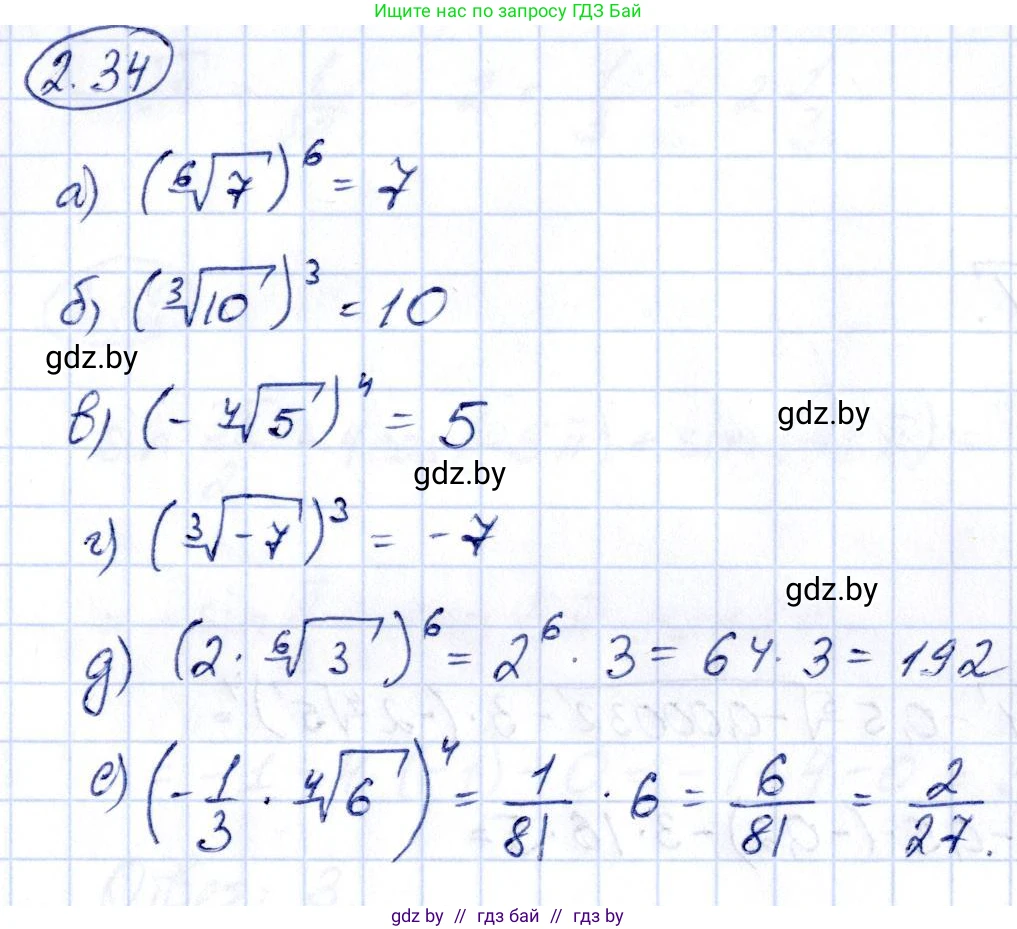 Ищите нас по запросу ГДЗ Бай
2.34
а) (⁶√7)⁶ = 7
б) (³√10)³ = 10
gdz.by
в) (- ⁴√5)⁴ = 5
gdz.by
gdz.by
г) (³√-7)³ = -7
gdz.by
д) (2 · ⁶√3)⁶ = 2⁶ · 3 = 64 · 3 = 192
е) (- 1/3 · ⁴√6)⁴ = 1/81 · 6 = 6/81 = 2/27.
gdz by // гдз бай // gdz by